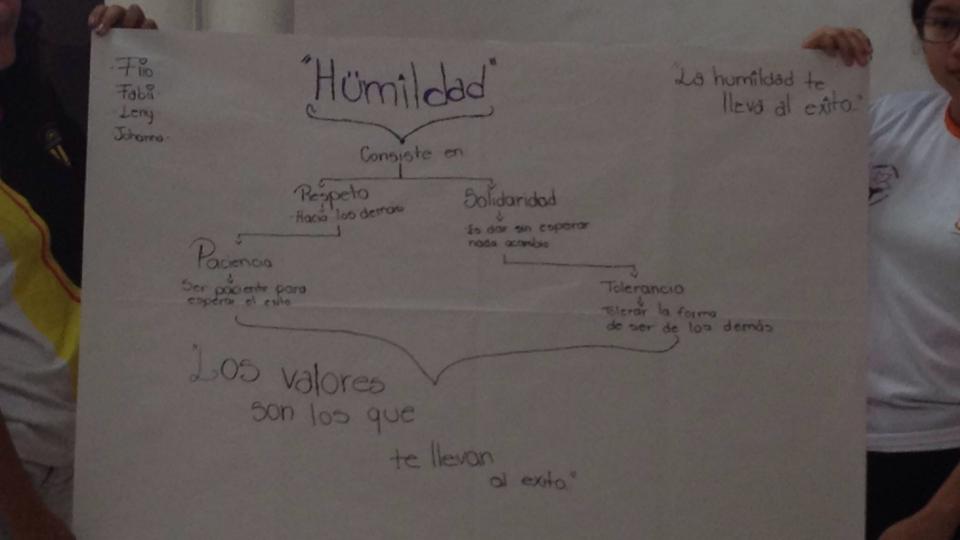 Fio
Fabi
Leny
Johanna
"Humildad"
"La humildad te
lleva al exito."
Consiste en
Respeto
Hacia los demas
Solidaridad
Es dar sin esperar
nada acambio
Paciencia
Ser paciente para
esperar el exito
Tolerancia
Tolerar la forma
de ser de los demás
"Los valores
son los que
te llevan
al exito."